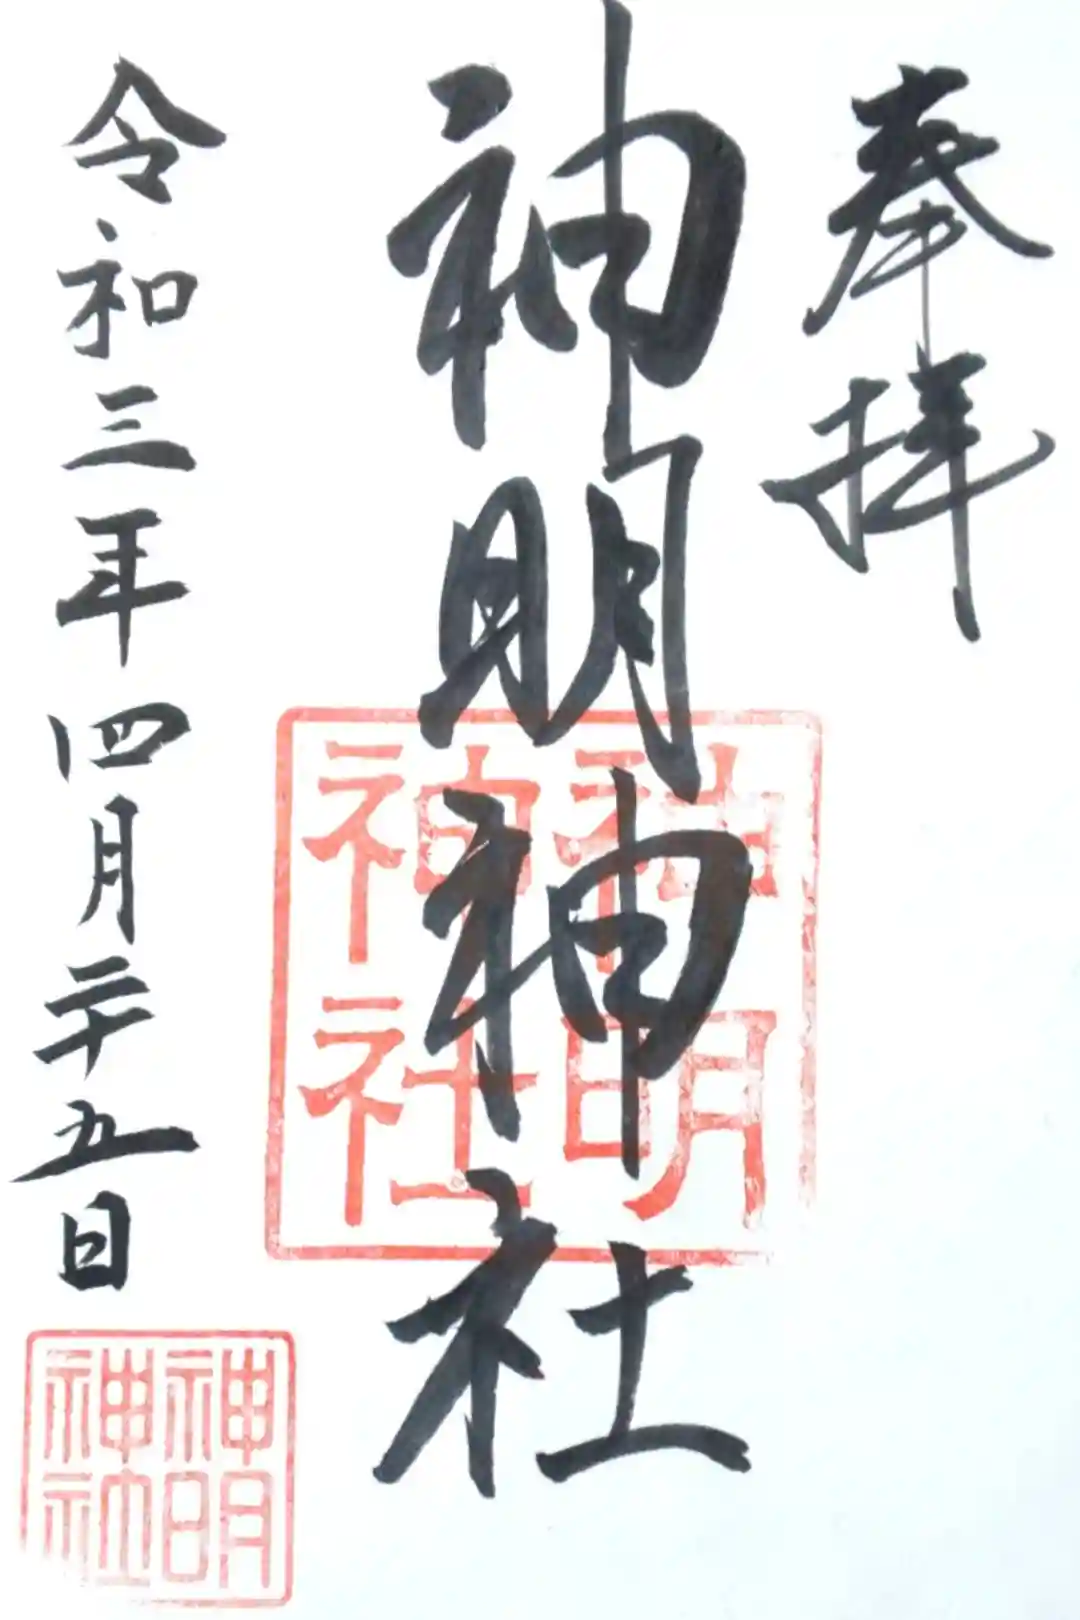 奉拝
神明神社
令和三年四月二十五日
神明神社
神明神社